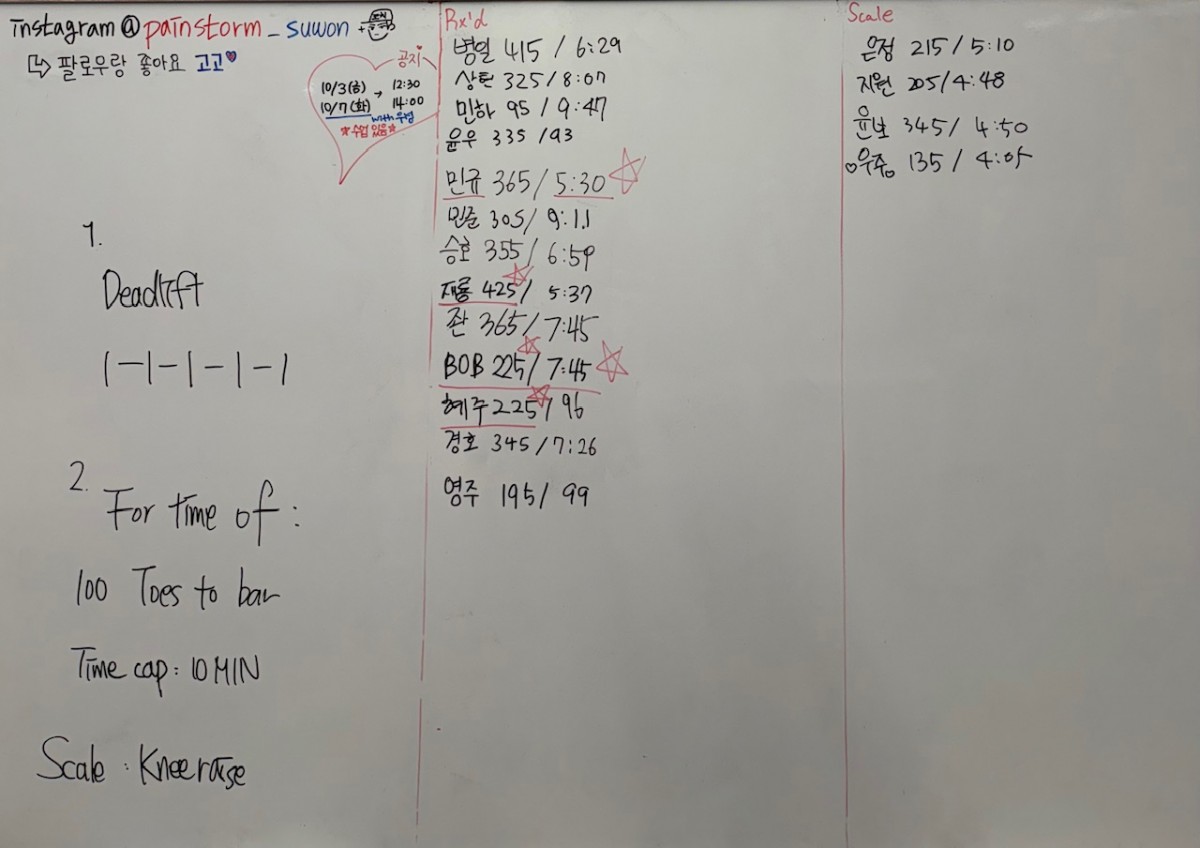 instagram @painstorm_suwon +
↳ 팔로우랑 좋아요 고고♥
공지♥
10/3(금) → 12:30
10/7(화) 14:00
with 우범
★수업 있음★
1.
Deadlift
1-1-1-1-1
2.
For time of :
100 Toes to bar
Time cap : 10 MIN
Scale : Knee raise
Rx'd
병일 415 / 6:29
상현 325 / 8:07
민하 95 / 9:47
윤우 335 / 93
민규 365 / 5:30 ☆
민준 305 / 9:11
승호 355 / 6:59
재룡 425☆ / 5:37
좐 365 / 7:45
BOB 225☆ / 7:45 ☆
혜주 225☆ / 96
경호 345 / 7:26
영주 195 / 99
Scale
은정 215 / 5:10
지원 205 / 4:48
윤보 345 / 4:50
♡우주♡ 135 /